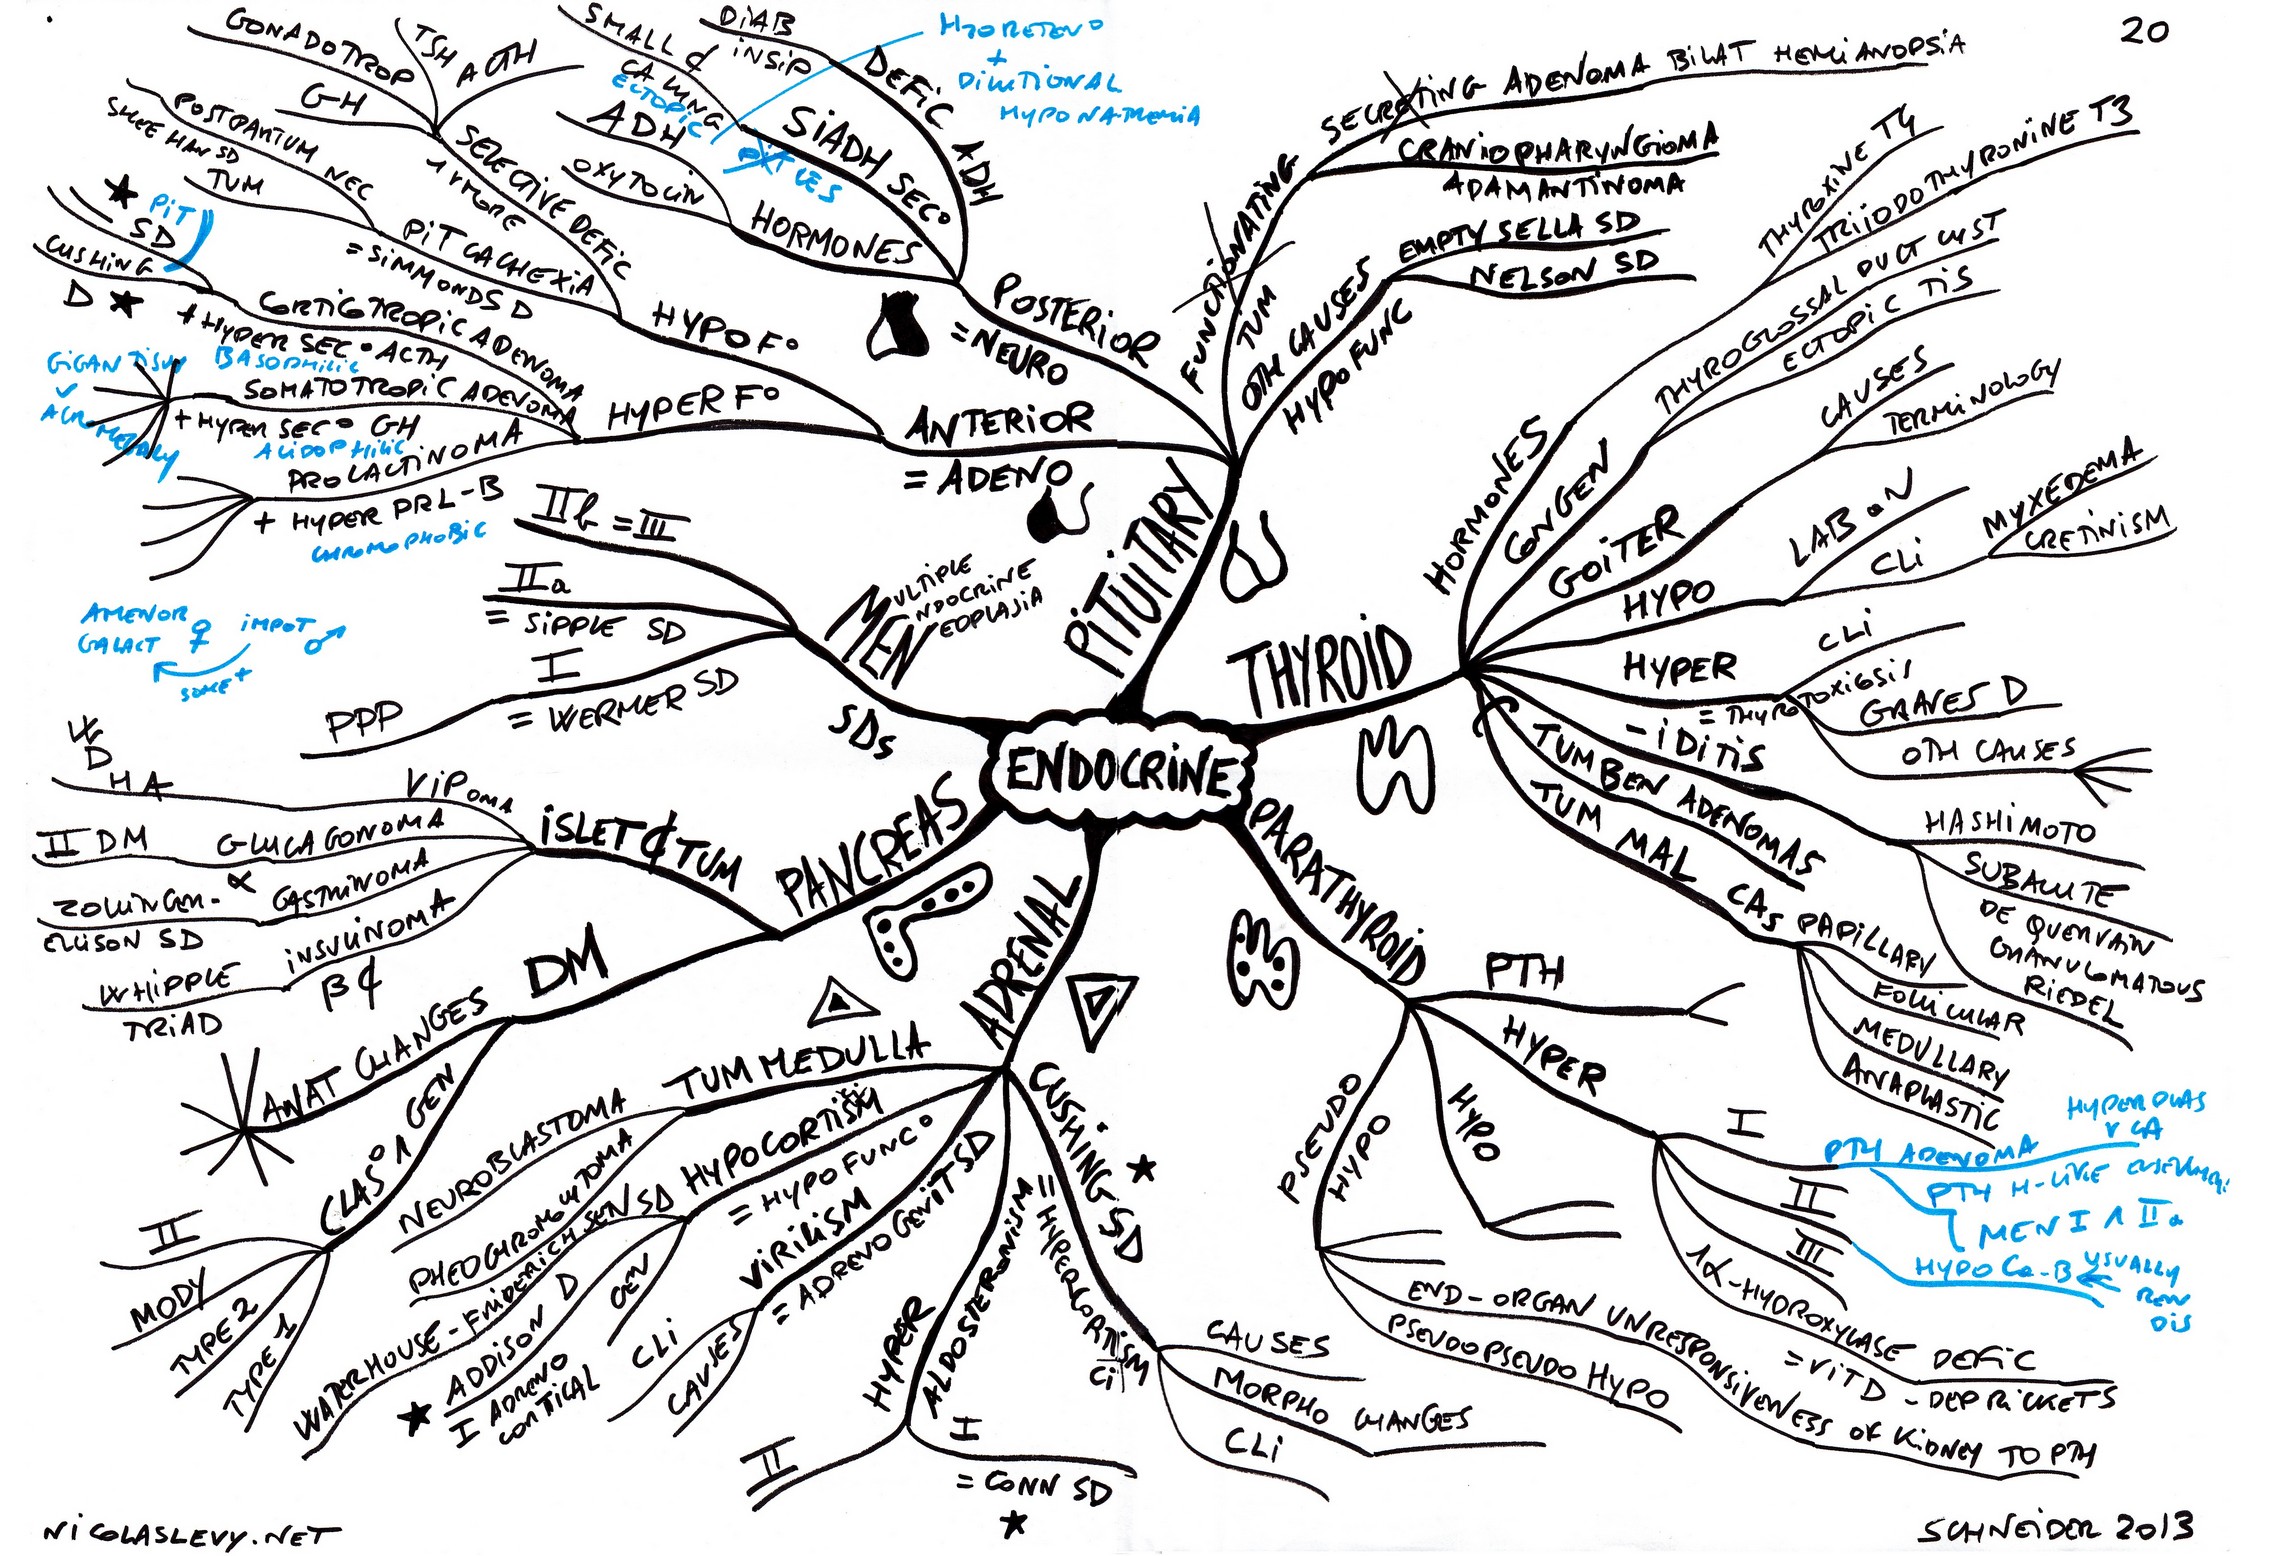 20
ENDOCRINE
PITUITARY
POSTERIOR
= NEURO
DEFIC ADH
DIAB
INSIP
SIADH SEC°
SMALL ¢
CA LUNG
ECTOPIC
PIT LES
H2O RETENO
+
DILUTIONAL
HYPONATREMIA
HORMONES
ADH
OXYTOCIN
ANTERIOR
= ADENO
HYPO F°
SELECTIVE DEFIC
1 V MORE
GONADOTROP
TSH
ACTH
GH
PIT CACHEXIA
= SIMMONDS D
POSTPARTUM NEC
SHEEHAN SD
TUM
HYPER F°
CORTICOTROPIC ADENOMA
+ HYPER SEC° ACTH
BASOPHILIC
PIT
SD
CUSHING
D
SOMATOTROPIC ADENOMA
+ HYPER SEC° GH
ACIDOPHILIC
GIGANTISM
V
ACROMEGALY
PROLACTINOMA
+ HYPER PRL-B
CHROMOPHOBIC
AMENOR
GALACT ♀
IMPOT ♂
SOME+
FUNCTIONATING
TUM
SECRETING ADENOMA BILAT HEMIANOPSIA
CRANIOPHARYNGIOMA
ADAMANTINOMA
OTH CAUSES
HYPO FUNC
EMPTY SELLA SD
NELSON SD
THYROID
HORMONES
THYROXINE T4
TRIIODOTHYRONINE T3
CONGEN
THYROGLOSSAL DUCT CYST
ECTOPIC TIS
GOITER
CAUSES
TERMINOLOGY
HYPO
LAB ON
CLI
MYXEDEMA
CRETINISM
HYPER
= THYROTOXICOSIS
CLI
GRAVES D
OTH CAUSES
-IDITIS
HASHIMOTO
SUBACUTE
DE QUERVAIN
GRANULOMATOUS
RIEDEL
TUM BEN ADENOMAS
TUM MAL CAS
PAPILLARY
FOLLICULAR
MEDULLARY
ANAPLASTIC
PARATHYROID
PTH
HYPER
I
PTH ADENOMA
HYPERPLAS
V CA
PTH H-LIKE
MEN I ∧ IIa
II
III
HYPO Ca-B
USUALLY
REN
DIS
1α-HYDROXYLASE DEFIC
= VIT D - DEP RICKETS
HYPO
PSEUDO
HYPO
END-ORGAN UNRESPONSIVENESS OF KIDNEY TO PTH
PSEUDOPSEUDO HYPO
ADRENAL
CUSHING SD
= HYPERCORTISM
CI
CAUSES
MORPHO CHANGES
CLI
HYPER
ALDOSTERONISM
I
= CONN SD
II
VIRILISM
= ADRENOGENIT SD
CLI
CAUSES
HYPOCORTISM
= HYPO FUNC°
GEN
ADDISON D
I ADRENO
CORTICAL
WATERHOUSE-FRIDERICHSEN SD
TUM MEDULLA
NEUROBLASTOMA
PHEOCHROMOCYTOMA
PANCREAS
ISLET ¢ TUM
VIPOMA
W
D
HA
GLUCAGONOMA
α
II DM
GASTRINOMA
ZOLLINGER-
ELLISON SD
INSULINOMA
β ¢
WHIPPLE
TRIAD
DM
ANAT CHANGES
CLAS° ∧ GEN
II
MODY
TYPE 2
TYPE 1
MEN
MULTIPLE
ENDOCRINE
NEOPLASIA
SDs
IIb = III
IIa
= SIPPLE SD
I
= WERMER SD
PPP
NICOLASLEVY.NET
SCHNEIDER 2013